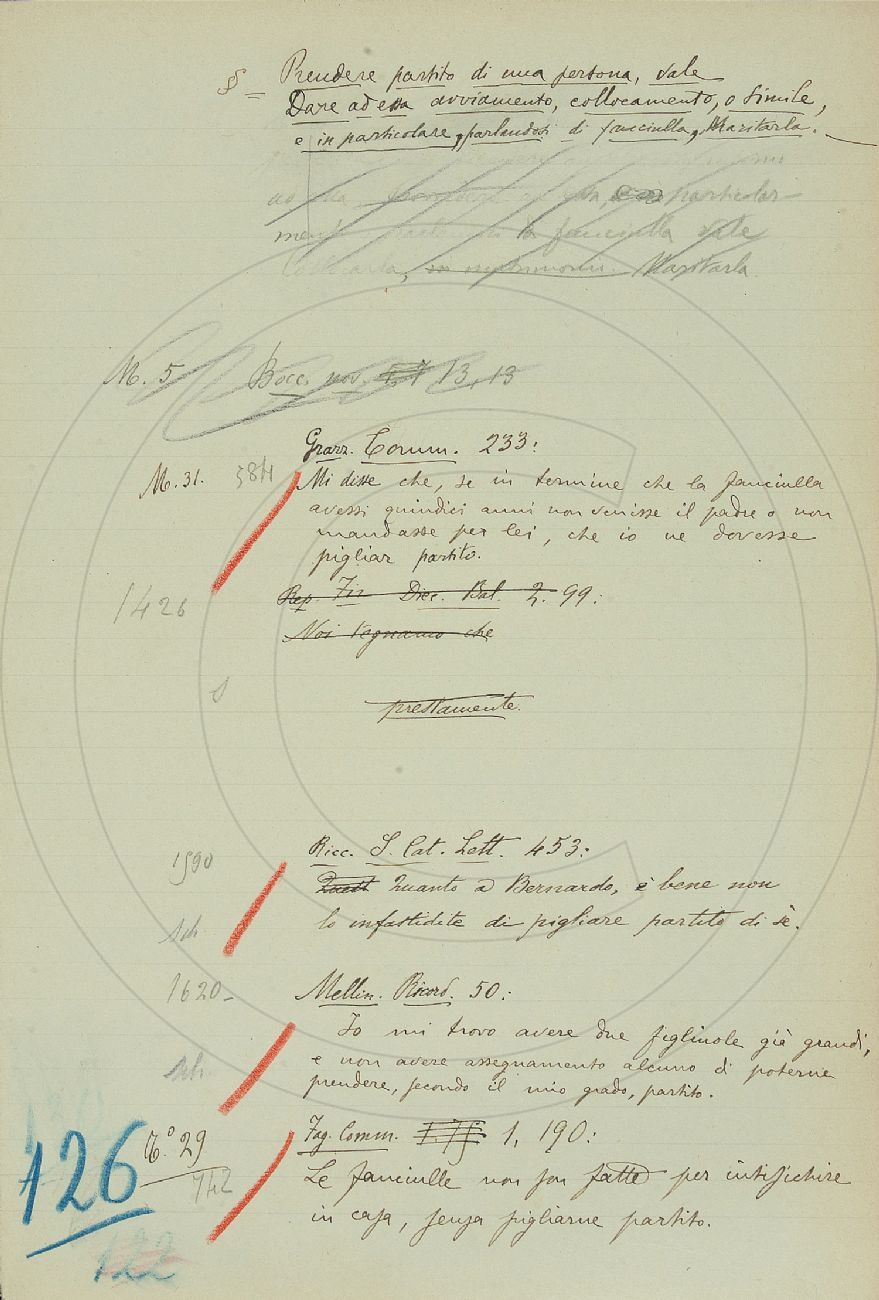 § = Prendere partito di una persona, vale
Dare ad essa avviamento, collocamento, o simile,
e in particolare, parlandosi di fanciulla, Maritarla. —
particolar
mente la fanciulla vale
Collocarla, in matrimonio. Maritarla.
M. 5 Bocc. nov. 13, 13
Grazz. Comm. 233:
M. 31. 584 Mi disse che, se in termine che la fanciulla
avessi quindici anni non venisse il padre o non
mandasse per lei, che io ne dovesse
pigliar partito.
1426 Rep. Fir Dicc. Bal. 2. 99:
Noi vegnamo che
S
prestamente.
1590 Ricc. S. Cat. Lett. 453:
Quanto a Bernardo, è bene non
sch lo infastidite di pigliare partito di sè.
1620- Mellin. Ricord. 50:
Io mi trovo avere due figliuole già grandi,
sch e non avere assegnamento alcuno di poterne
prendere, secondo il mio grado, partito.
126 T.° 29 Fag. Comm. 1, 190:
742 Le fanciulle non son fatte per intisichire
in casa, senza pigliarne partito.
122